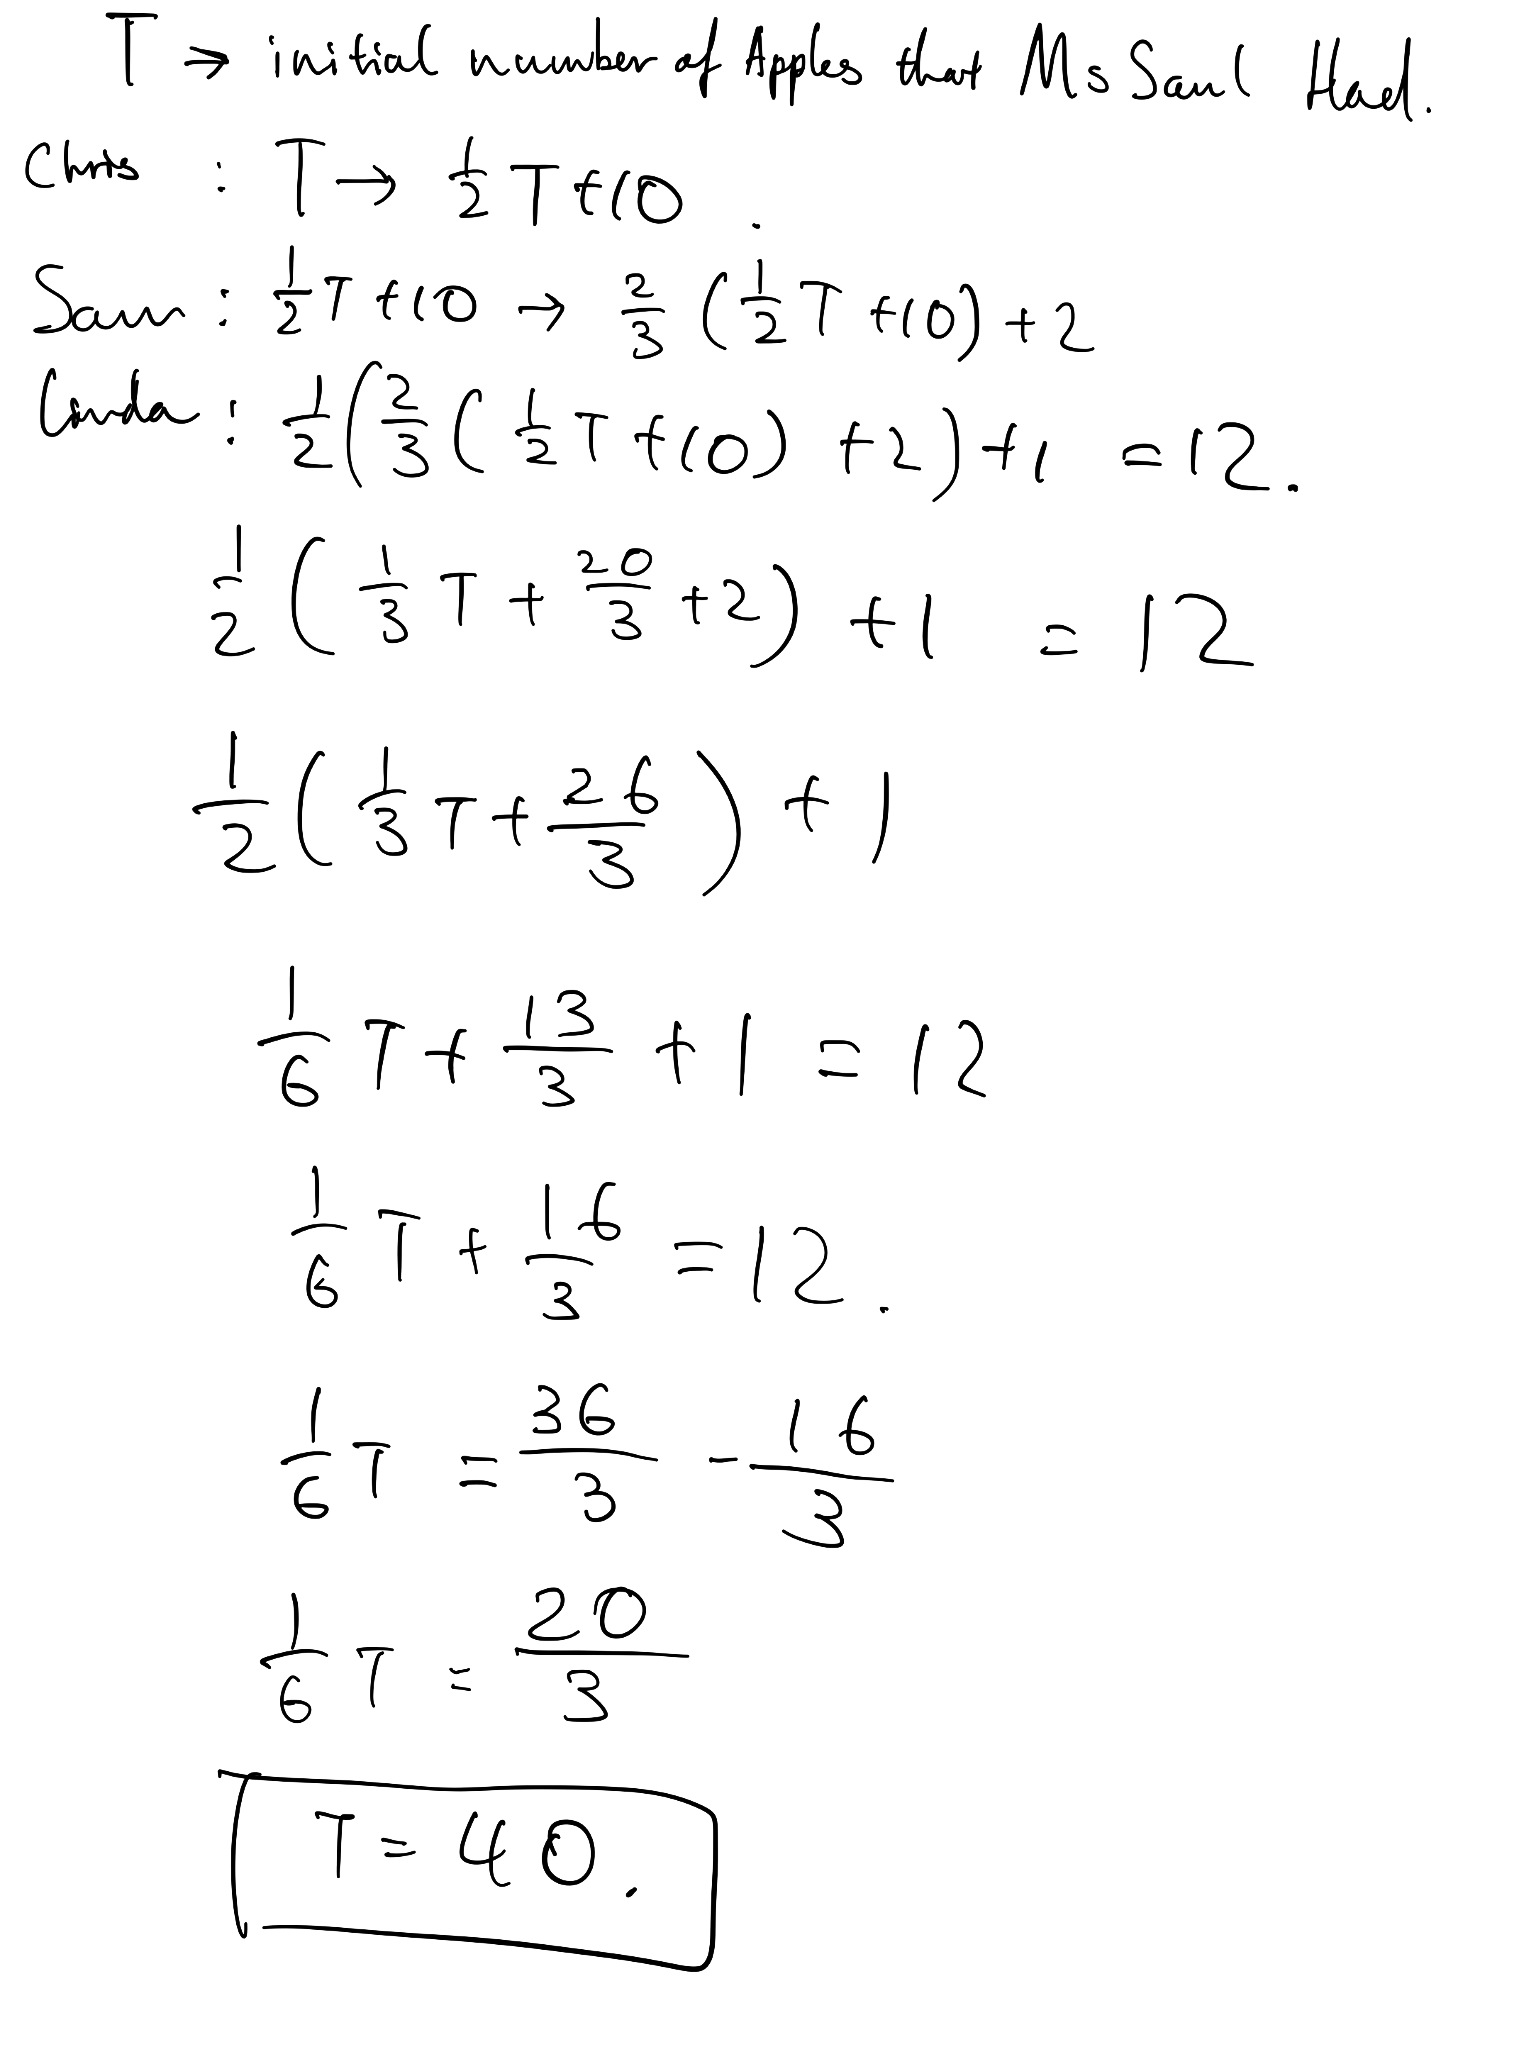 T → initial number of Apples that Ms Saul Had.
Chris : T → 1/2 T + 10 .
Sam : 1/2 T + 10 → 2/3 (1/2 T + 10) + 2
Linda : 1/2 (2/3 (1/2 T + 10) + 2) + 1 = 12.
1/2 (1/3 T + 20/3 + 2) + 1 = 12
1/2 (1/3 T + 26/3) + 1
1/6 T + 13/3 + 1 = 12
1/6 T + 16/3 = 12.
1/6 T = 36/3 - 16/3
1/6 T = 20/3
T = 40.